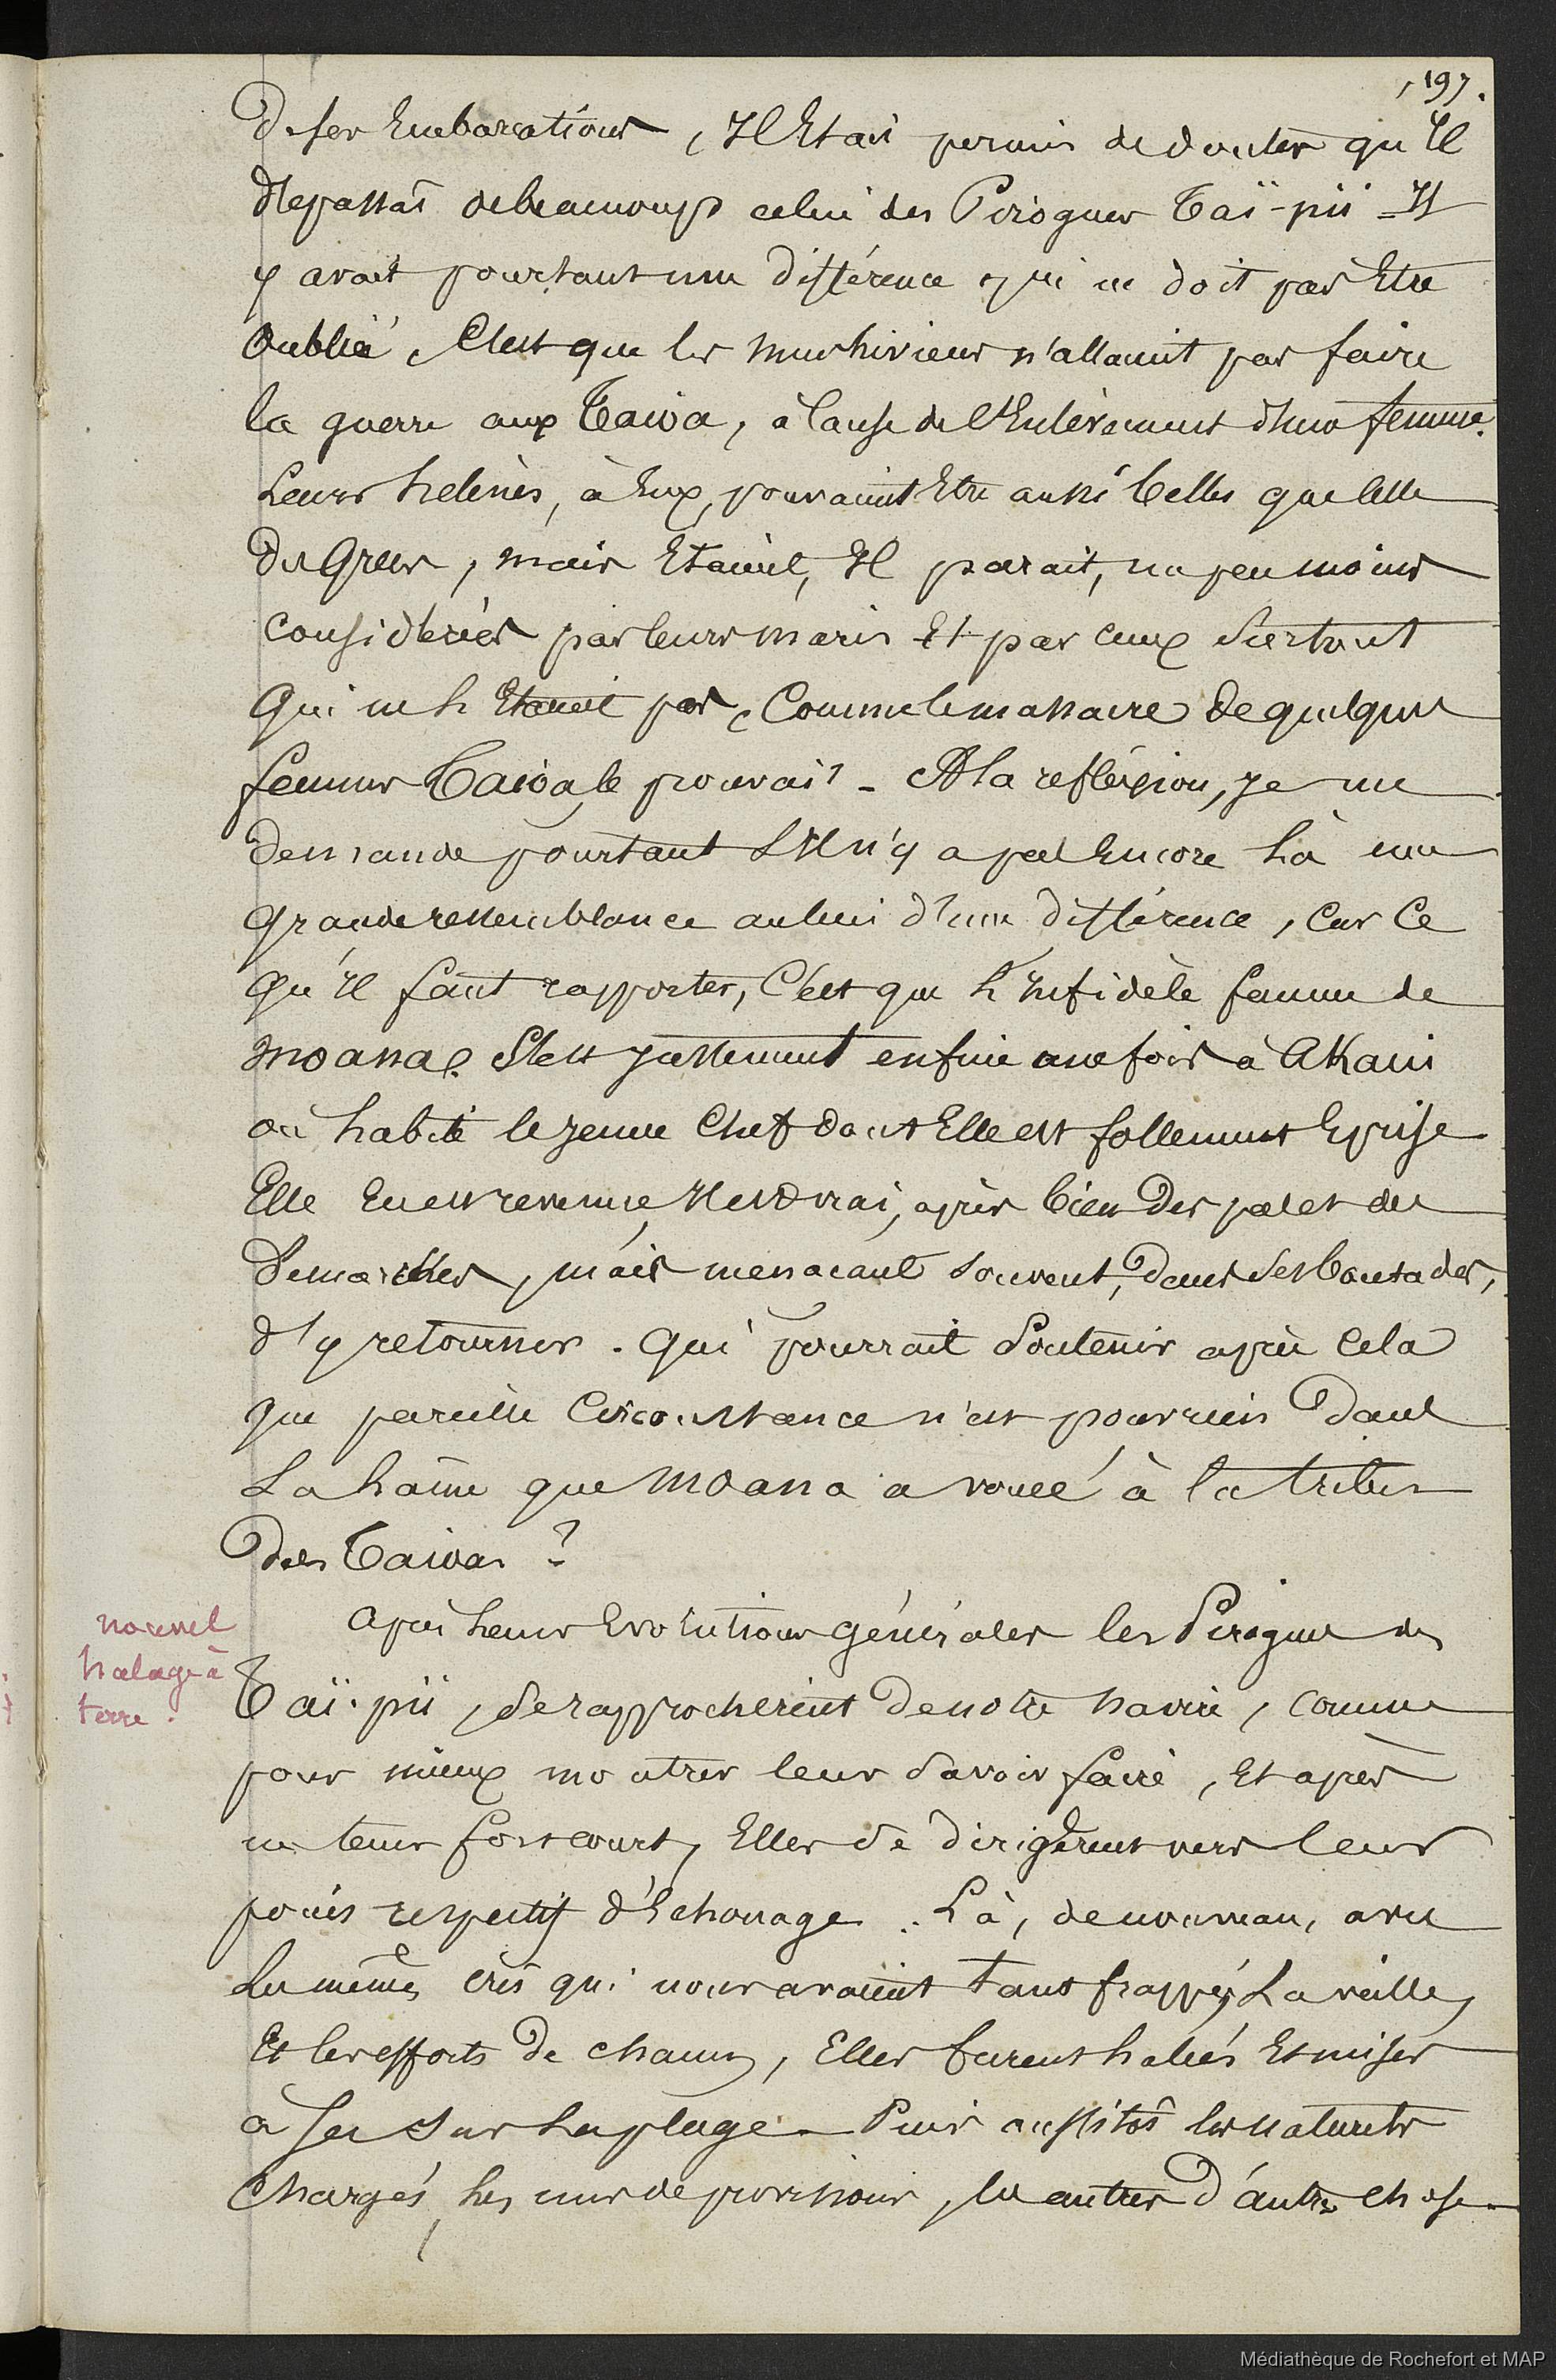 197.
de ses Embarcations, Il Etait permis de douter qu'Il
dépassat de beaucoup celui des Pirogues Taï-pii - Il
y avait pourtant une différence qui ne doit pas Etre
Oublié, C'est que les nuhiviens n'allaient pas faire
la guerre aux Taioa, à Cause de l'Enlèvement d'une femme.
Leurs helènes, à Eux, pouvaient Etre aussi belles que Celle
des Grecs, mais Etaient, Il parait, un peu moins
considérées par leurs maris Et par ceux Surtout
Qui ne l'Etaient pas, Comme le massacre de quelques
femmes Taioa, le prouvait - A la refléxion, je me
demande pourtant S'Il n'y a pas Encore là une
grande ressemblance au lieu d'une différence, Car Ce
qu'Il faut rapporter, C'est que l'Infidèle femme de
moana S'est justement enfuie une fois à Akaui
où habite le jeune Chef dont Elle est follement Eprise
Elle En est revenue, Il est vrai, après bien des pas et des
démarches, mais menaçant souvent, dans Ses boutades,
d'y retourner. Qui pourrait Soutenir après Cela
que pareille Circonstance n'est pour rien dans
La haine que Moana a voué à la tribu
des Taioas ?
nouvel
halage à
terre.
Après leurs Evolutions générales les Pirogues des
Taï-pii, Se rapprochèrent de notre navire, comme
pour mieux montrer leur Savoir faire, Et après
un tems fort court, Elles Se dirigèrent vers leur
point respectif d'Echouage. Là, de nouveau, avec
Les mêmes cris qui nous avaient tant frappés La veille,
Et les efforts de chacun, Elles furent halées Et mises
à Sec Sur La plage - Puis aussitôt les naturels
Chargés, les uns de provisions, les autres d'autre chose
Médiathèque de Rochefort et MAP